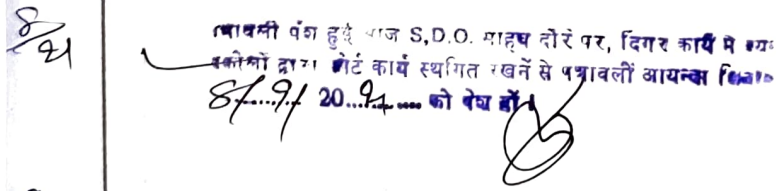 8/21
पत्रावली पेश हुई आज S,D.O. साहब दौरे पर, दिगर कार्य में व्यस्त
वकीलों द्वारा कोर्ट कार्य स्थगित रखनें से पत्रावलीं आयन्दा दिनांक
8/....9/ 20...21.... को पेश हों